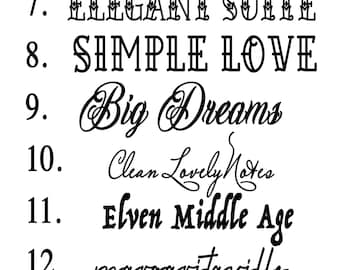 7. ELEGANT SUITE
8. SIMPLE LOVE
9. Big Dreams
10. Clean Lovely Notes
11. Elven Middle Age
12. margaritaville